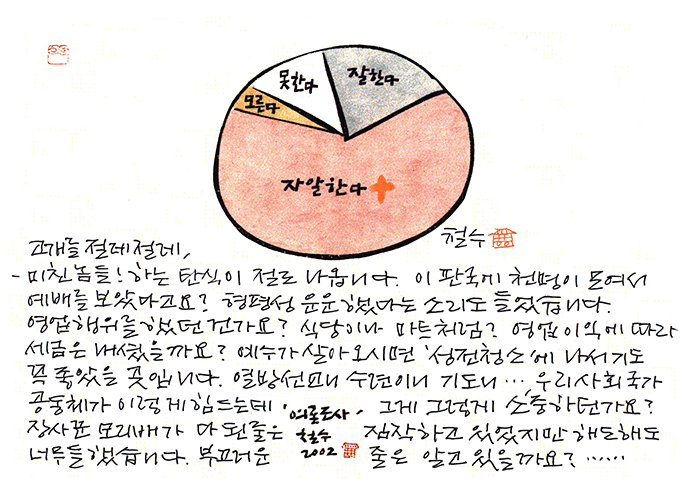 못한다
잘한다
모른다
자알한다
철수
고개를 절레절레,
- 미친 놈들! 하는 탄식이 절로 나옵니다. 이 판국에 천명이 모여서
예배를 보았다고요? 형평성 운운했다는 소리도 들었습니다.
영업행위를 했던 건가요? 식당이나 마트처럼? 영업이익에 따라
세금은 내셨을까요? 예수가 살아오시면 '성전청소'에 나서기도
꼭 죽었을 곳입니다. 열방선교니 수련이니 기도니… 우리사회국가
공동체가 이렇게 힘드는데 그게 그렇게 소중하던가요?
장사꾼 모리배가 다 된줄은 짐작하고 있었지만 해도해도
너무들했습니다. 부끄러운 줄은 알고 있을까요? ……
'여론조사'
철수
2002